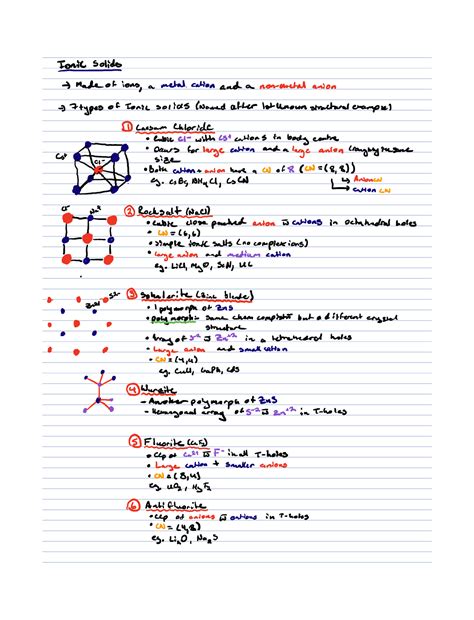 Ionic Solids
→ Made of ions, a metal cation and a non-metal anion
→ 7 types of Ionic solids (Named after 1st known structural example)
① Caesium Chloride
• Cubic Cl- with Cs+ cations in body centre
• Occurs for large cation and a large anion (roughly the same size
• Both cation + anion have a CN of 8 (CN = (8,8))
↳ Anion CN
eg. CsBr, NH4Cl, CsCN
↳ cation CN
Cs+
Cl-
② Rocksalt (NaCl)
• Cubic close packed anion w cations in octahedral holes
• CN = (6,6)
• simple ionic salts (no complex ions)
• large anion and medium cation
eg. LiCl, MgO,
Cl-
Na+
③ Sphalerite (Zinc blende)
• 1 polymorph of ZnS
• Polymorph: same chem composition but a different crystal structure
• Array of S-2 w Zn+2 in a tetrahedral holes
• Large anion and small cation
• CN = (4,4)
eg. CuCl, CdS
S2-
④ Wurtzite
- Another polymorph of ZnS
- Hexagonal array of S-2 w Zn+2 in T-holes
⑤ Fluorite (CaF2)
• CCp of Ca2+ w F- in all T-holes
• Large cation + smaller anions
• CN = (8,4)
eg. UO2, HgF2
⑥ Antifluorite
• CCp of anions w cations in T-holes
• CN = (4,8)
eg. Li2O, Na2S